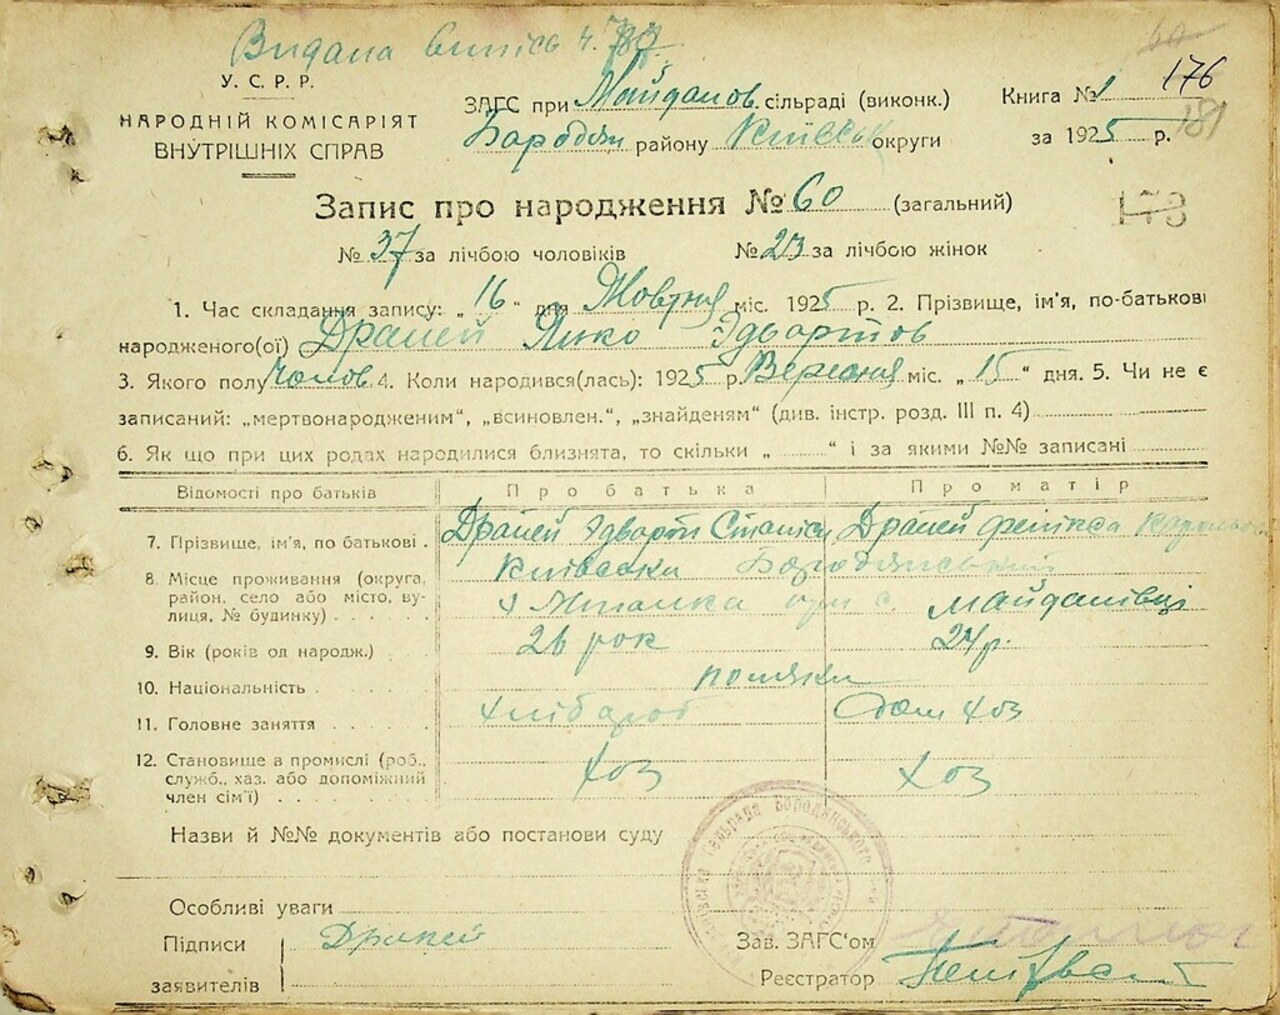 Видана виписъ ч. 787.
У. С. Р. Р.
НАРОДНІЙ КОМІСАРІЯТ
ВНУТРІШНІХ СПРАВ
ЗАГС при Майданов. сільраді (виконк.)
Бородян району Київськ округи
Книга № 1 176
за 1925 р. 181
Запис про народження № 60 (загальний)
173
№ 37 за лічбою чоловіків № 23 за лічбою жінок
1. Час складання запису: „ 16 “ дня Жовтня міс. 1925 р. 2. Прізвище, ім'я, по-батькові
народженого(ої) Драпей Янко Эдвартов
3. Якого полу Чолов. 4. Коли народився(лась): 1925 р. Вересня міс. „ 15 “ дня. 5. Чи не є
записаний: „мертвонародженим“, „всиновлен.“, „знайденям“ (див. інстр. розд. III п. 4)
6. Як що при цих родах народилися близнята, то скільки „ “ і за якими №№ записані
Відомості про батьків Про батька Про матір
7. Прізвище, ім'я, по батькові . Драпей Эдварт Станісл Драпей Фелікса
8. Місце проживання (округа, Київська Бородянський
район, село або місто, ву-
лиця, № будинку) . . . . . с. Майданівці
9. Вік (років од народж.) 26 рок 24 р.
10. Національність . . . . . поляки
11. Головне заняття . . . . . хлібороб Дом хоз
12. Становище в промислі (роб.,
служб., хаз. або допоміжний хоз хоз
член сім'ї) . . . . . . .
Назви й №№ документів або постанови суду
сільрада Бородянського
Особливі уваги
Підписи Драпей
заявителів
Зав. ЗАГС'ом
Реєстратор